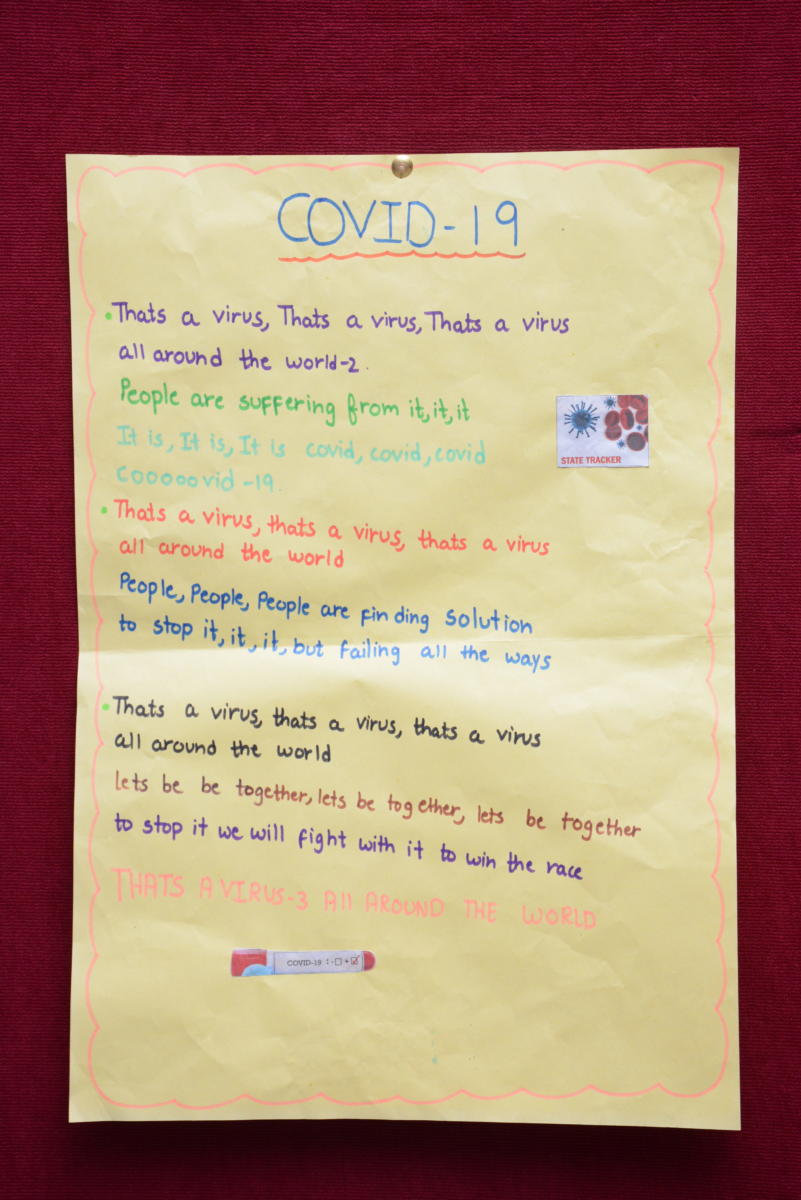 COVID-19
• Thats a virus, Thats a virus, Thats a virus
all around the world-2.
People are suffering from it, it, it
It is, It is, It is covid, covid, covid
Cooooovid -19.
STATE TRACKER
• Thats a virus, thats a virus, thats a virus
all around the world
People, People, People are finding solution
to stop it, it, it, but failing all the ways
• Thats a virus, thats a virus, thats a virus
all around the world
lets be be together, lets be together, lets be together
to stop it we will fight with it to win the race
THATS A VIRUS-3 All AROUND THE WORLD
COVID-19 : -☐ +☑